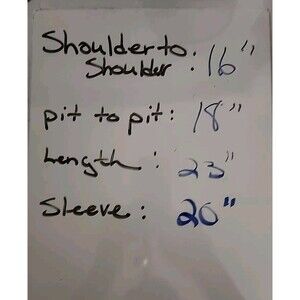 Shoulder to
Shoulder : 16"
pit to pit : 18"
Length : 23"
Sleeve : 20"